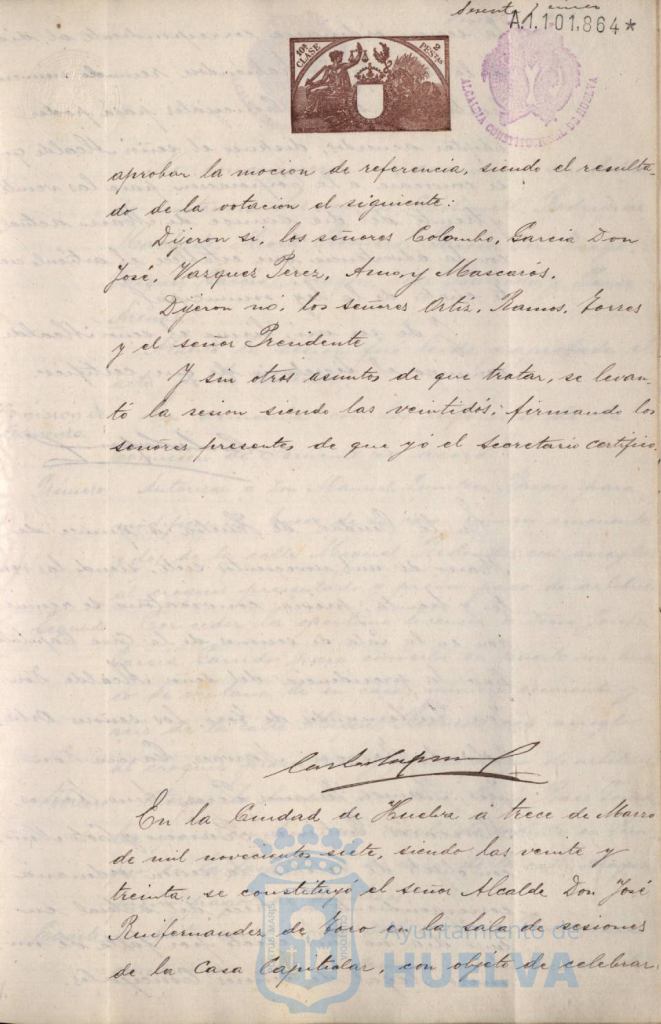 Sesenta
A.1.101,864*
10ª CLASE
2 PESTAS
ALCALDIA CONSTITUCIONAL DE HUELVA
aprobar la mocion de referencia, siendo el resulta-
do de la votacion el siguiente:
Dijeron si, los señores Colombo, Garcia Don
José, Vazquez Perez, Amo, y Mascarós.
Dijeron nó, los señores Ortiz, Ramos, Torres
y el señor Presidente
Y sin otros asuntos de que tratar, se levan-
tó la sesion siendo las veintidós; firmando los
señores presentes, de que yó el Secretario certifico.
En la Ciudad de Huelva á trece de Marzo
de mil novecientos siete, siendo las veinte y
treinta, se constituyó el señor Alcalde Don José
Ruifernandez de Toro en la Sala de sesiones
de la Casa Capitular, con objeto de celebrar
Ayuntamiento de
HUELVA